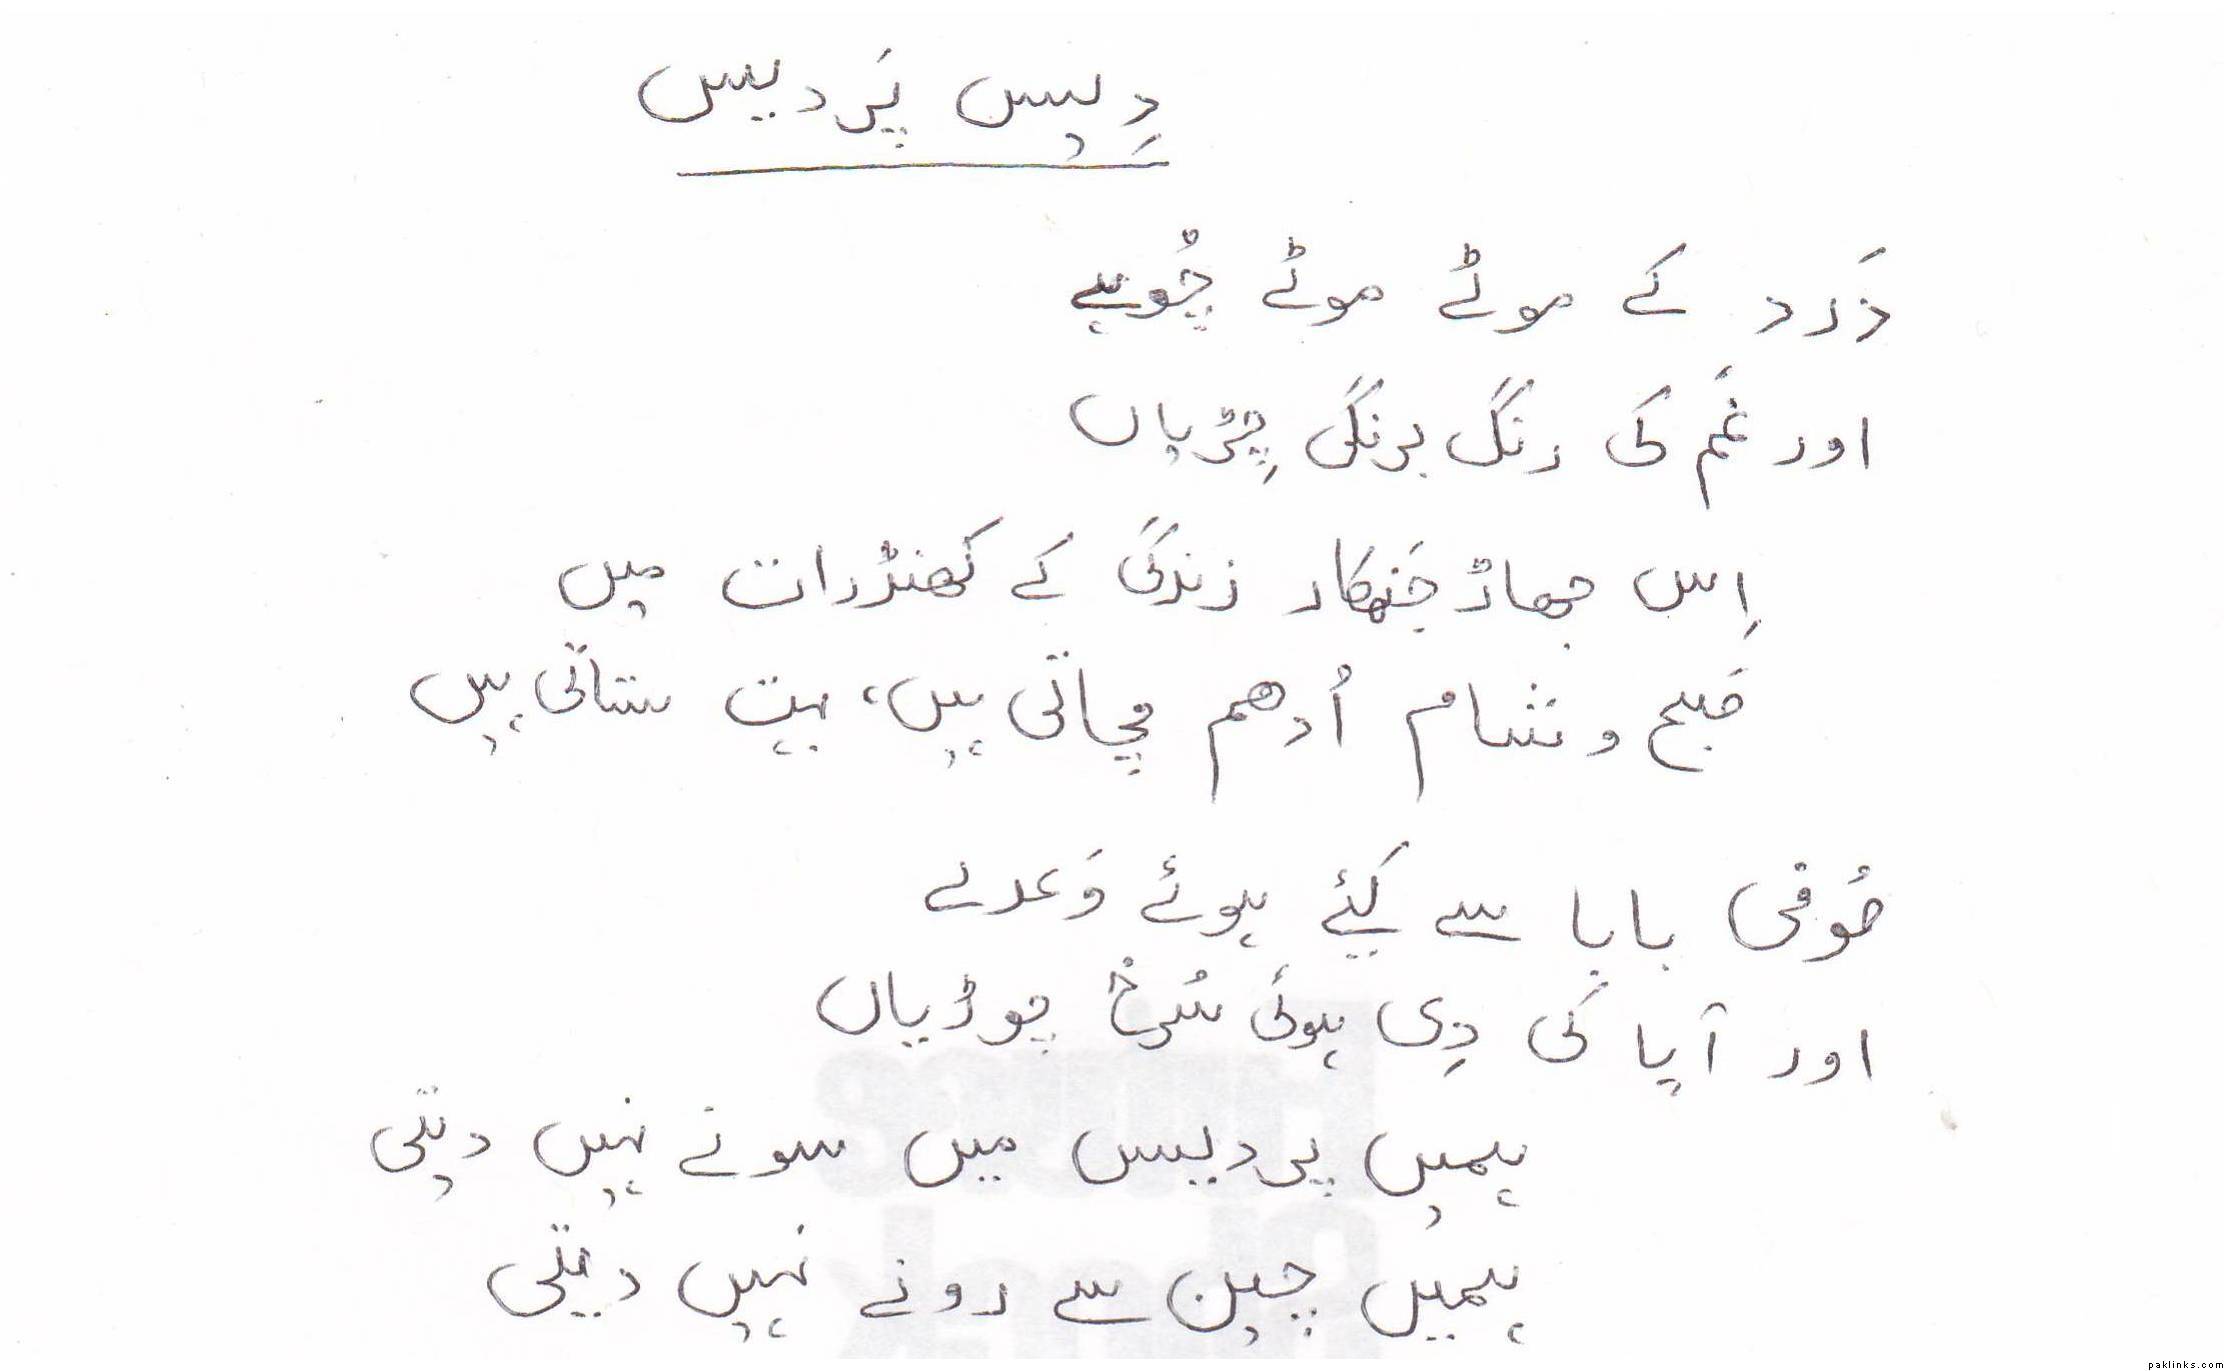 دِیس پَردیس
دَرد کے موٹے موٹے چُوہے
اور غَم کی رنگ برنگی چِڑیاں
اِس جھاڑ جَنھکار زندگی کے کھنڈرات میں
صَبح و شام اُدھم مچاتی ہیں، بہت ستاتی ہیں
صُوفی بابا سے کیٔے ہوئے وَعدے
اور آپا کی دِی ہوئی سُرخ چوڑیاں
ہمیں پردیس میں سونے نہیں دیتی
ہمیں چین سے رونے نہیں دیتی
paklinks.com